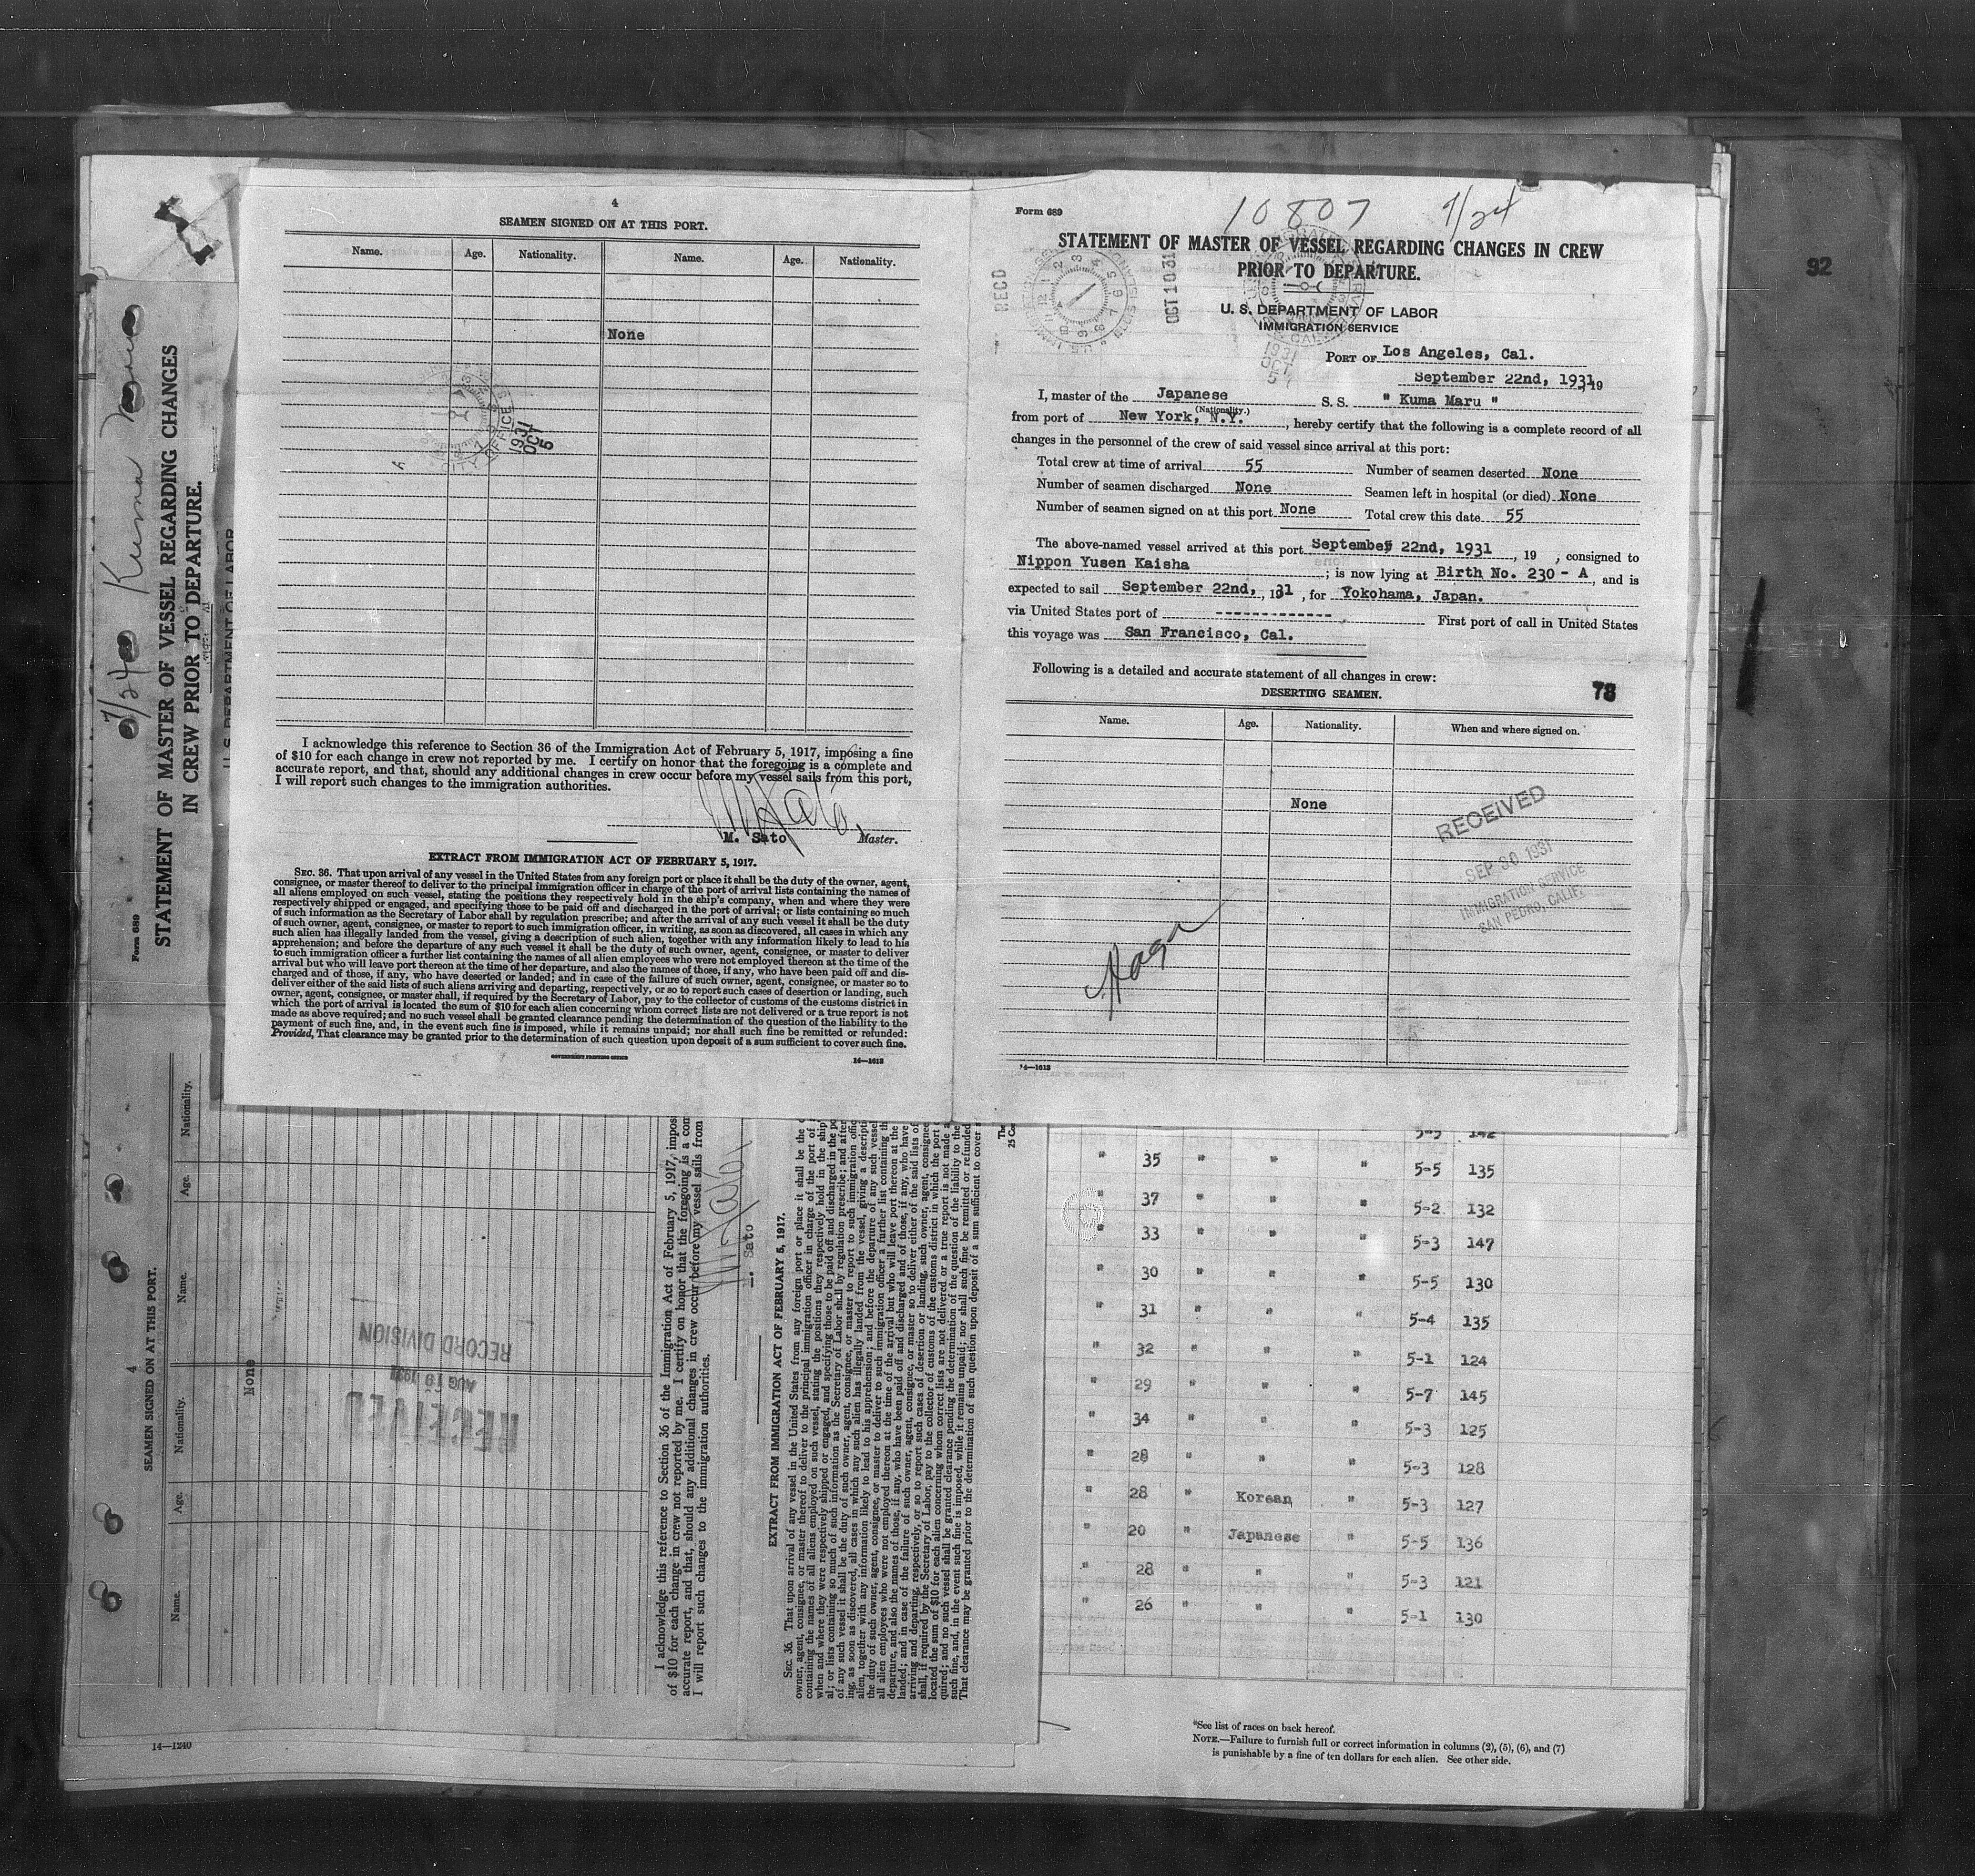 4
SEAMEN SIGNED ON AT THIS PORT.
Name. Age. Nationality. Name. Age. Nationality.
None
CITY OFFICE
1931
OCT
5
I acknowledge this reference to Section 36 of the Immigration Act of February 5, 1917, imposing a fine
of $10 for each change in crew not reported by me. I certify on honor that the foregoing is a complete and
accurate report, and that, should any additional changes in crew occur before my vessel sails from this port,
I will report such changes to the immigration authorities.
M Sato
M. Sato Master.
EXTRACT FROM IMMIGRATION ACT OF FEBRUARY 5, 1917.
SEC. 36. That upon arrival of any vessel in the United States from any foreign port or place it shall be the duty of the owner, agent,
consignee, or master thereof to deliver to the principal immigration officer in charge of the port of arrival lists containing the names of
all aliens employed on such vessel, stating the positions they respectively hold in the ship's company, when and where they were
respectively shipped or engaged, and specifying those to be paid off and discharged in the port of arrival; or lists containing so much
of such information as the Secretary of Labor shall by regulation prescribe; and after the arrival of any such vessel it shall be the duty
of such owner, agent, consignee, or master to report to such immigration officer, in writing, as soon as discovered, all cases in which any
such alien has illegally landed from the vessel, giving a description of such alien, together with any information likely to lead to his
apprehension; and before the departure of any such vessel it shall be the duty of such owner, agent, consignee, or master to deliver
to such immigration officer a further list containing the names of all alien employees who were not employed thereon at the time of the
arrival but who will leave port thereon at the time of her departure, and also the names of those, if any, who have been paid off and dis-
charged and of those, if any, who have deserted or landed; and in case of the failure of such owner, agent, consignee, or master so to
deliver either of the said lists of such aliens arriving and departing, respectively, or so to report such cases of desertion or landing, such
owner, agent, consignee, or master shall, if required by the Secretary of Labor, pay to the collector of customs of the customs district in
which the port of arrival is located the sum of $10 for each alien concerning whom correct lists are not delivered or a true report is not
made as above required; and no such vessel shall be granted clearance pending the determination of the question of the liability to the
payment of such fine, and, in the event such fine is imposed, while it remains unpaid; nor shall such fine be remitted or refunded:
Provided, That clearance may be granted prior to the determination of such question upon deposit of a sum sufficient to cover such fine.
GOVERNMENT PRINTING OFFICE 14—1613
Form 689
10807 9/24
STATEMENT OF MASTER OF VESSEL REGARDING CHANGES IN CREW
PRIOR TO DEPARTURE.
RECD
OCT 10 31
U. S. DEPARTMENT OF LABOR
IMMIGRATION SERVICE
1931
OCT
5
PORT OF Los Angeles, Cal.
September 22nd, 1931, 19
I, master of the Japanese S. S. " Kuma Maru "
(Nationality.)
from port of New York, N.Y. , hereby certify that the following is a complete record of all
changes in the personnel of the crew of said vessel since arrival at this port:
Total crew at time of arrival 55 Number of seamen deserted None
Number of seamen discharged None Seamen left in hospital (or died) None
Number of seamen signed on at this port None Total crew this date 55
The above-named vessel arrived at this port September 22nd, 1931 , 19 , consigned to
Nippon Yusen Kaisha ; is now lying at Birth No. 230 - A, and is
expected to sail September 22nd, , 1931 , for Yokohama, Japan.
via United States port of ------------- First port of call in United States
this voyage was San Francisco, Cal.
Following is a detailed and accurate statement of all changes in crew:
DESERTING SEAMEN. 78
Name. Age. Nationality. When and where signed on.
None
RECEIVED
SEP 30 1931
IMMIGRATION SERVICE
SAN PEDRO, CALIF.
14—1613
92
9/24 Kuma Maru
STATEMENT OF MASTER OF VESSEL REGARDING CHANGES
IN CREW PRIOR TO DEPARTURE.
U. S. DEPARTMENT OF LABOR
Form 689
4
SEAMEN SIGNED ON AT THIS PORT.
Name. Age. Nationality. Name. Age. Nationality.
None
RECEIVED
AUG 19 1931
RECORD DIVISION
14—1240
I acknowledge this reference to Section 36 of the Immigration Act of February 5, 1917, impos
of $10 for each change in crew not reported by me. I certify on honor that the foregoing is a com
accurate report, and that, should any additional changes in crew occur before my vessel sails from
I will report such changes to the immigration authorities.
Sato
EXTRACT FROM IMMIGRATION ACT OF FEBRUARY 5, 1917.
SEC. 36. That upon arrival of any vessel in the United States from any foreign port or place it shall be the
5-5 142
" 35 " " " 5-5 135
" 37 " " " 5-2 132
" 33 " " " 5-3 147
" 30 " " " 5-5 130
" 31 " " " 5-4 135
" 32 " " " 5-1 124
" 29 " " " 5-7 145
" 34 " " " 5-3 125
" 28 " " " 5-3 128
" 28 " Korean " 5-3 127
" 20 " Japanese " 5-5 136
" 28 " " " 5-3 121
" 26 " " " 5-1 130
*See list of races on back hereof.
NOTE.—Failure to furnish full or correct information in columns (2), (5), (6), and (7)
is punishable by a fine of ten dollars for each alien. See other side.